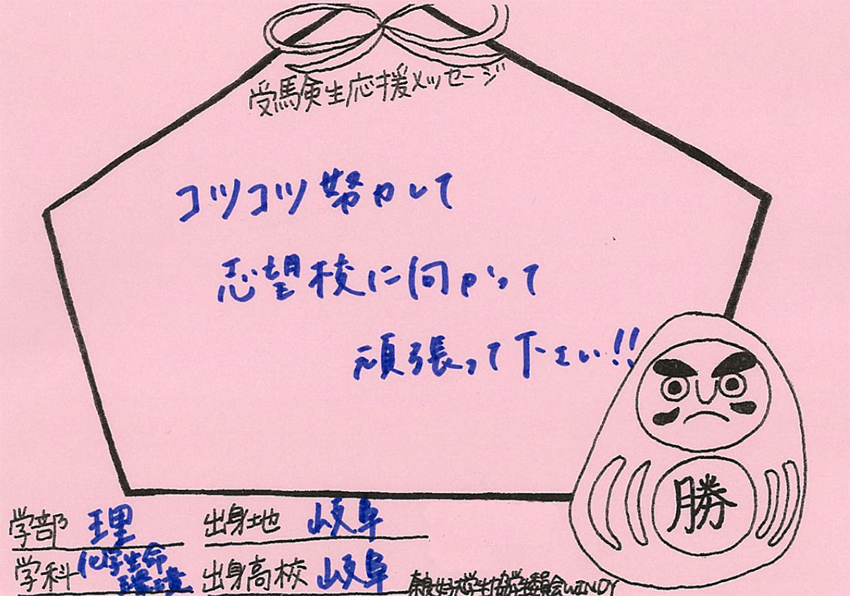 受験生応援メッセージ
コツコツ努力して
志望校に向かって
頑張って下さい!!
勝
学部 理 出身地 岐阜
学科 化学生命環境 出身高校 岐阜
WINDY